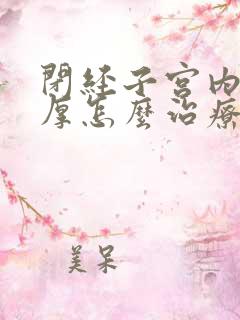 閉經子宮內
厚怎麼治療
美呆